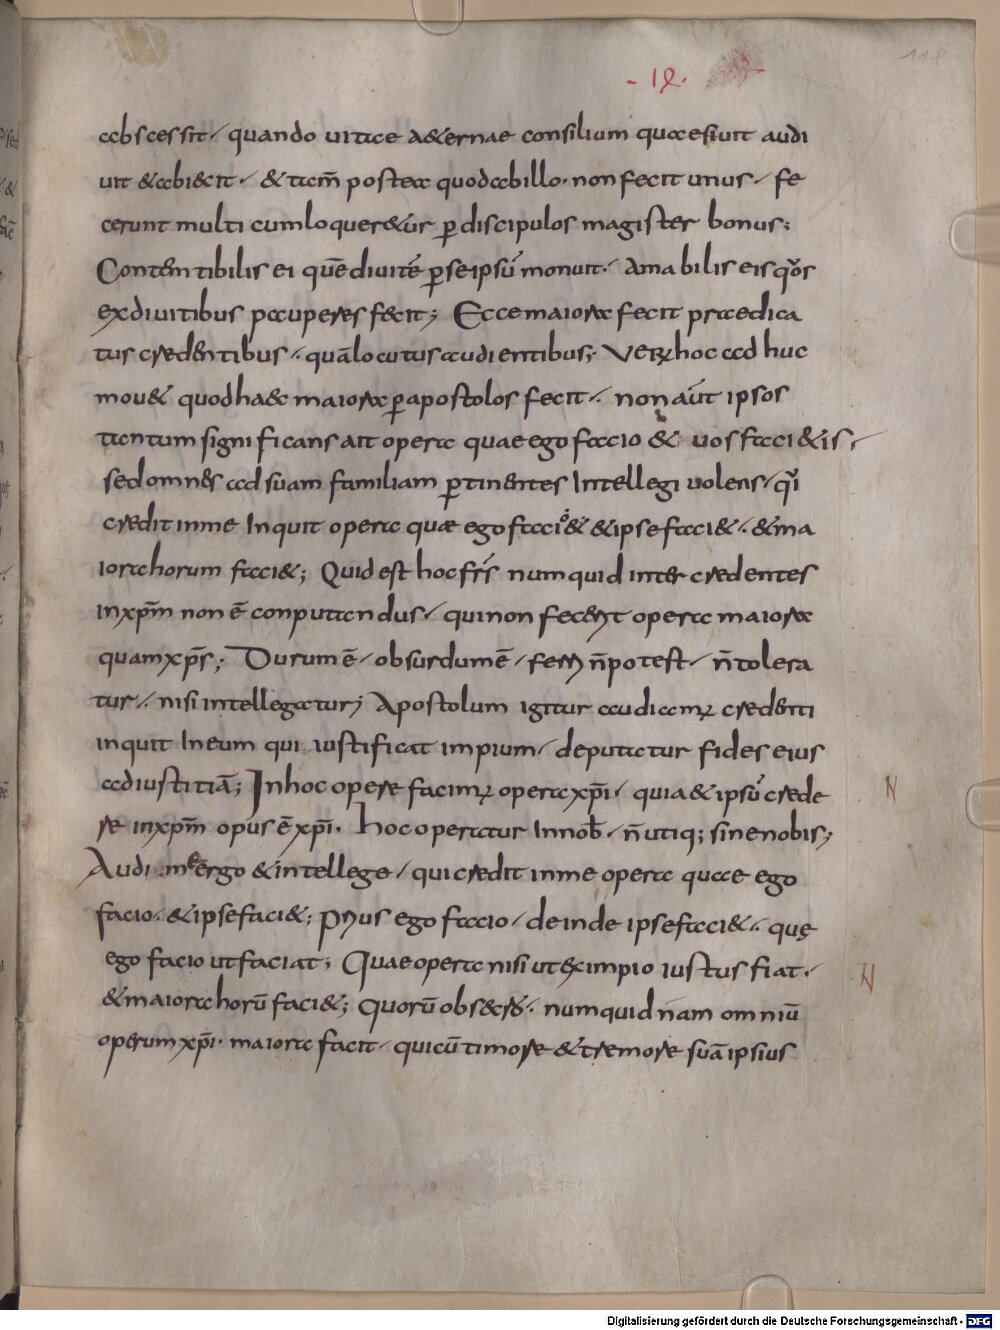 118
- IX ·
abscessit / quando uitae aeternae consilium quaesiuit audi
uit & abiecit · & tam̄ postea quod ab illo · non fecit unus / fe
cerunt multi cum loquer&ur p̱ discipulos magister bonus ;
Contemtibilis ei quē diuitē p̱ se ipsū monuit · Amabilis eis q̊s
ex diuitibus pauperes fecit ; Ecce maiora fecit praedica
tus credentibus · quā locutus audientibus ; Verū hoc adhuc
mou& quod haec maiora p̱ apostolos fecit / · non aūt ipsos
tantum significans ait opera quae ego facio & uos faci&is /
sed omnes ad suam familiam p̱tinentes Intellegi uolens / qͥ
credit in me Inquit opera quae ego facio & & ipse faci& · & ma
iora horum faci& ; Quid est hoc frs̄ numquid inter credentes
in xpm̄ non ē conputandus / qui non fecerit opera maiora
quam xps̄ ; Durum ē / obsurdum ē / ferri n̄ potest / n̄ tolera
tur / · nisi intellegatur ; Apostolum igitur audiamus credenti
inquit In eum qui iustificat impium / deputatur fides eius
ad iustitiā ; In hoc opere facimus opera xpī / quia & ipsū crede
re in xpm̄ opus ē xpī · hoc operatur In nob̄ / n̄ utiq; sine nobis ;
Audi me ergo & intellege / qui credit in me opera quae ego
facio · & ipse faci& ; Prius ego facio / deinde ipse faci& · quę
ego facio ut faciat ; Quae opera nisi ut ex impio iustus fiat ·
& maiora horū faci& ; Quorū obsecro · numquidnam omniū
operum xpī · maiora facit / qui cū timore & tremore suā ipsius
N
N
Digitalisierung gefördert durch die Deutsche Forschungsgemeinschaft - DFG